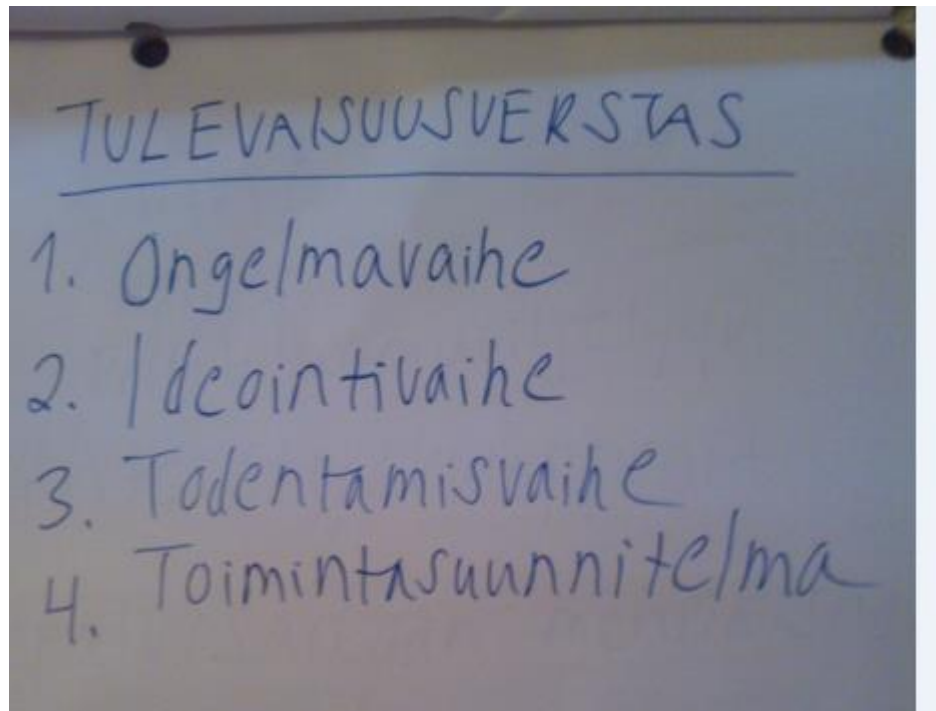 TULEVAISUUSVERSTAS
1. Ongelmavaihe
2. Ideointivaihe
3. Todentamisvaihe
4. Toimintasuunnitelma